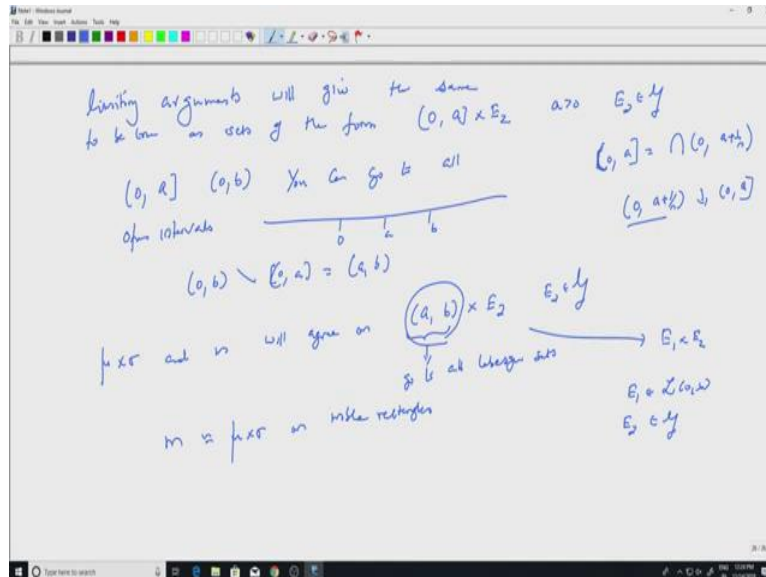 Note1 - Windows Journal
File Edit View Insert Actions Tools Help
limiting arguments will give the same
to be true on sets of the form (0, a] × E₂ a>0 E₂ ∈ 𝒴
(0, a] (0, b) You can go to all
open intervals
(0, a] = ⋂(0, a+1/n)
(0, a+1/n) ↓ (0, a]
0 a b
(0, b) \ (0, a] = (a, b)
μ×σ and m will agree on (a, b) × E₂ E₂ ∈ 𝒴
→ E₁ × E₂
go to all Lebesgue sets
E₁ ∈ ℒ(0, ∞)
E₂ ∈ 𝒴
m = μ×σ on mble rectangles
Type here to search